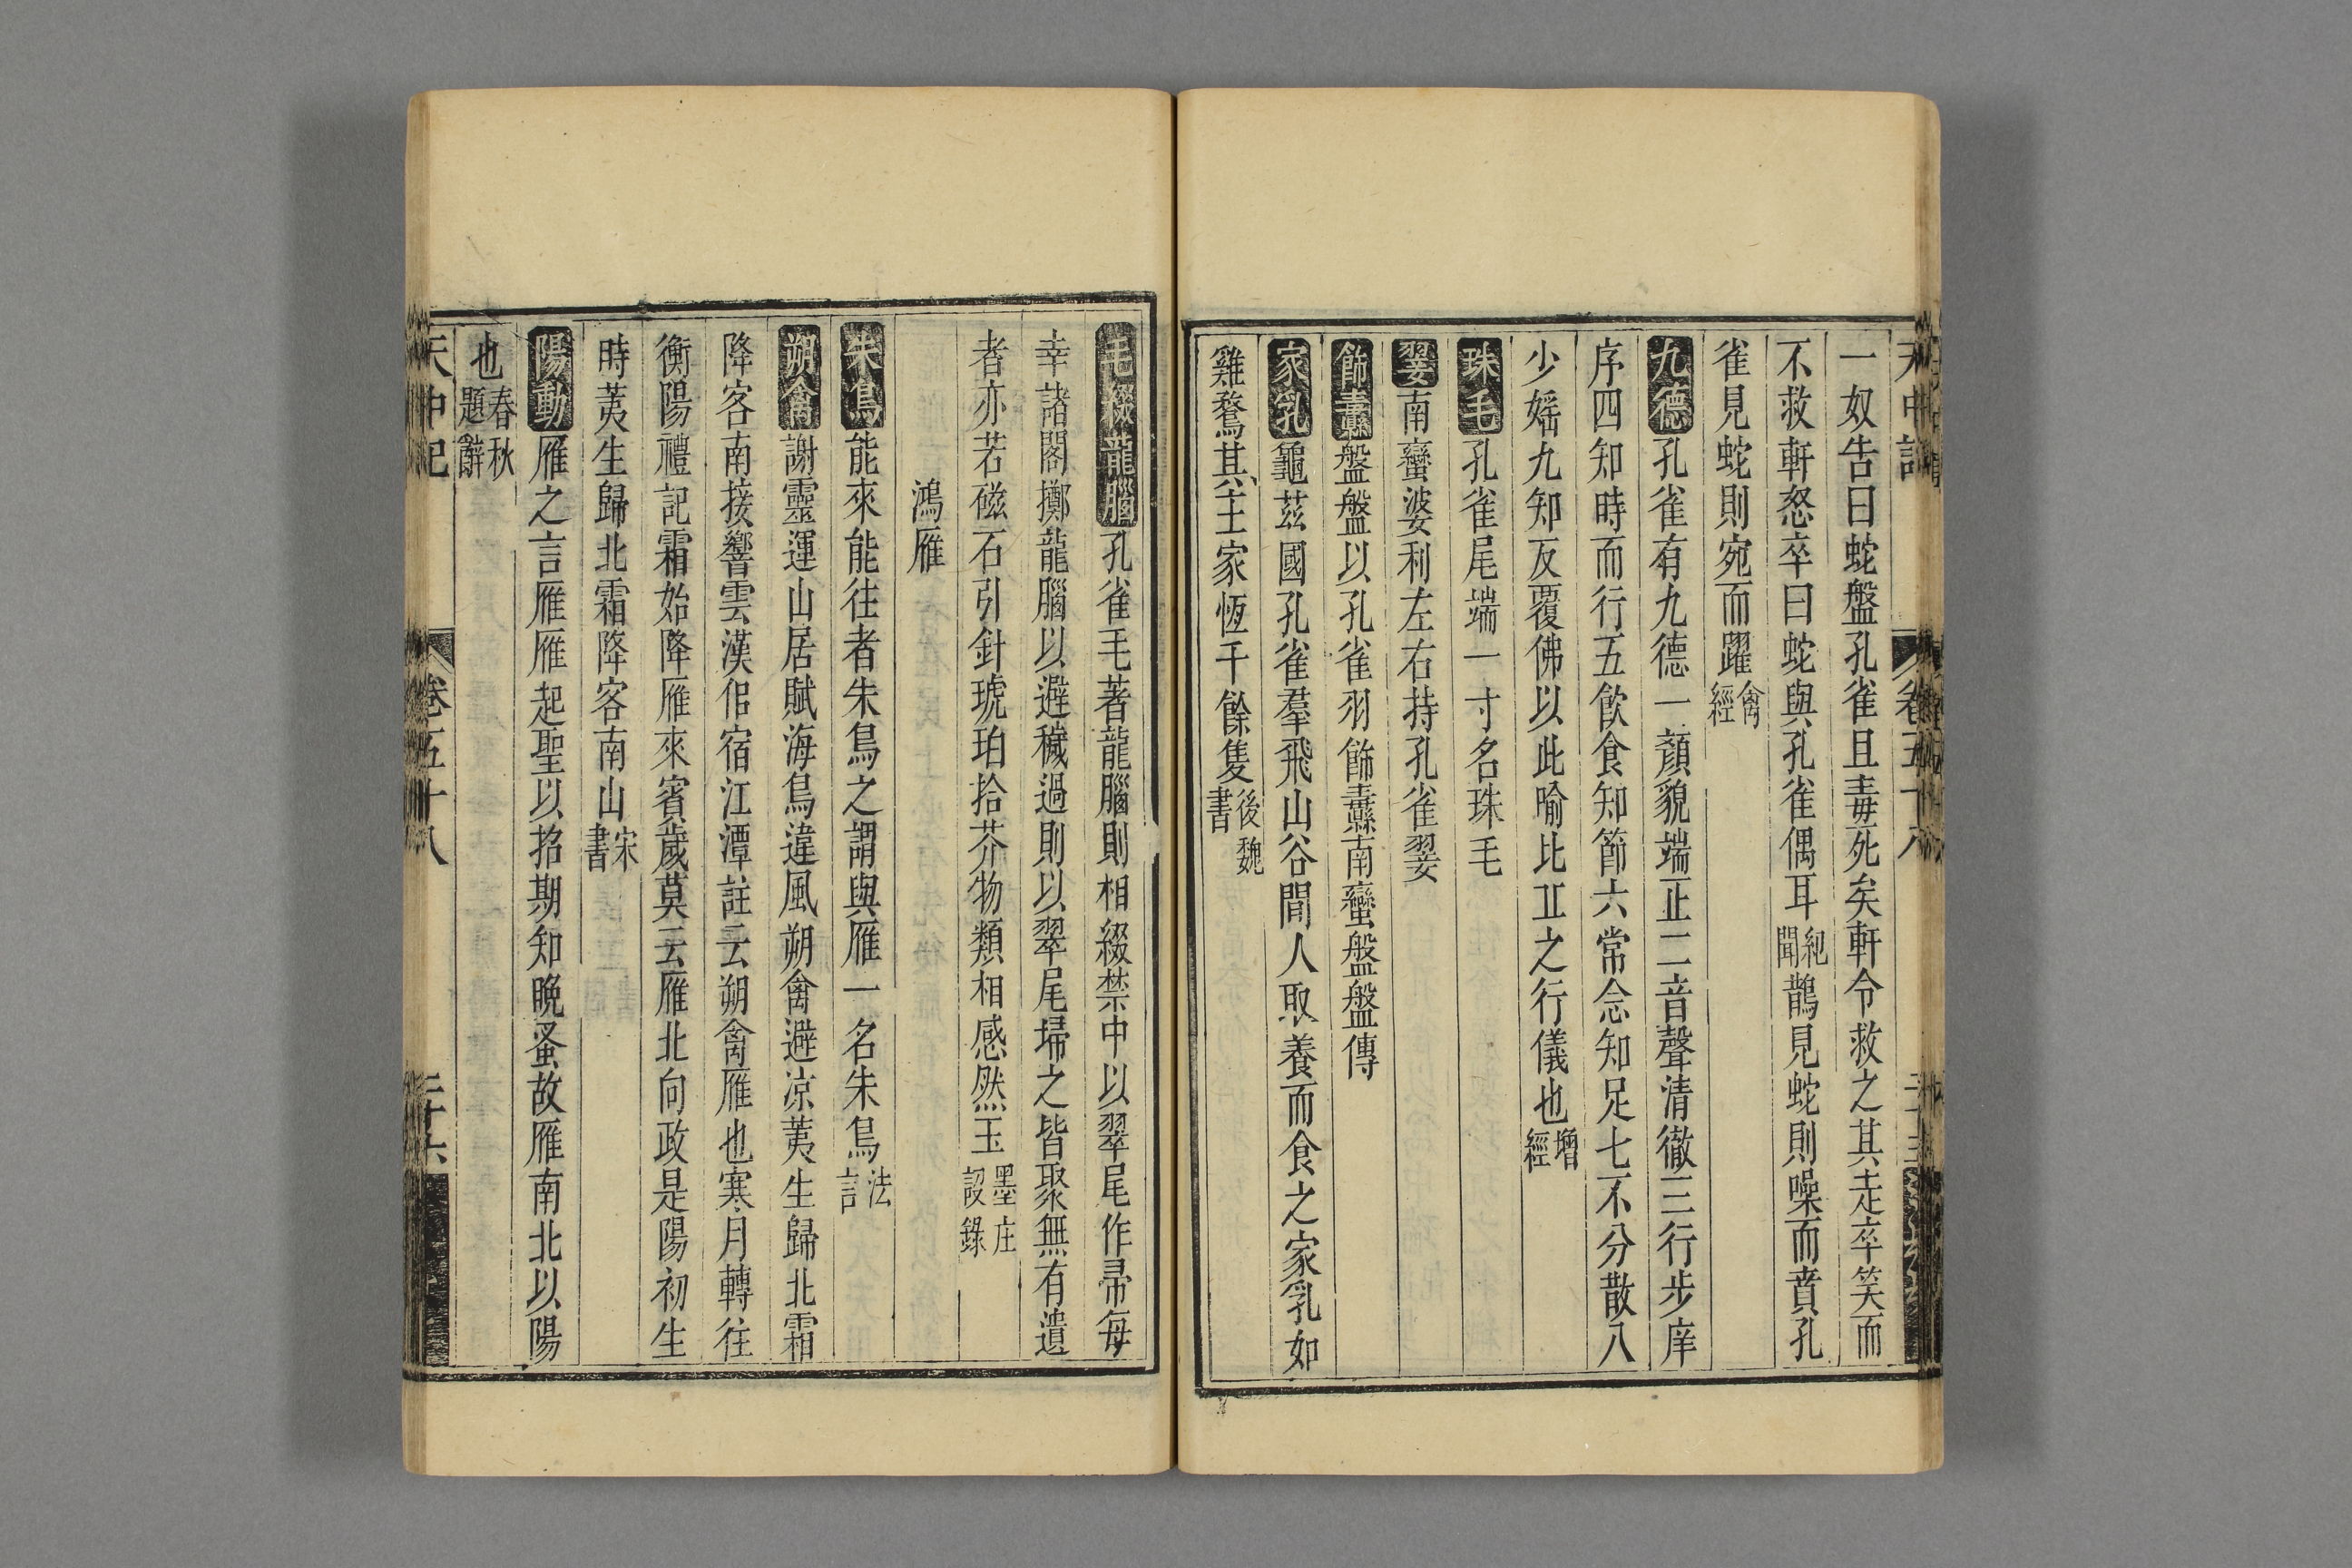 一奴告曰蛇盤孔雀且毒死矣軒令救之其走卒笑而
不救軒怒卒曰蛇與孔雀偶耳紀聞鵲見蛇則噪而賁孔
雀見蛇則宛而躍禽經
九德孔雀有九德一顏貌端正二音聲清徹三行步庠
序四知時而行五飲食知節六常念知足七不分散八
少婬九知反覆佛以此喻比丘之行儀也增經
珠毛孔雀尾端一寸名珠毛
翣南蠻婆利左右持孔雀翣
飾纛盤盤以孔雀羽飾纛南蠻盤盤傳
家乳龜茲國孔雀羣飛山谷間人取養而食之家乳如
雞鶩其主家恆千餘隻後魏書
毛綴龍腦孔雀毛著龍腦則相綴禁中以翠尾作帚每
幸諸閣擲龍腦以避穢過則以翠尾埽之皆聚無有遺
者亦若磁石引針琥珀拾芥物類相感然玉墨庄設錄
鴻雁
朱鳥能來能往者朱鳥之謂與雁一名朱鳥法言
朔禽謝靈運山居賦海鳥違風朔禽避凉荑生歸北霜
降客南接響雲漢侶宿江潭註云朔禽雁也寒月轉往
衡陽禮記霜始降雁來賓歲莫云雁北向政是陽初生
時荑生歸北霜降客南山宋書
陽動雁之言雁雁起聖以招期知晚蚤故雁南北以陽
也春秋題辭
天中記
卷五十八